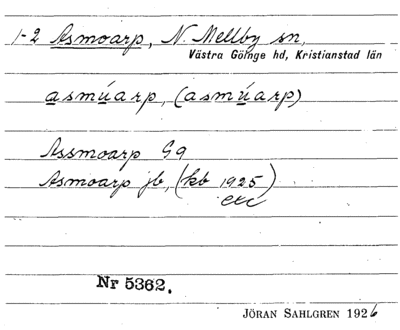 1-2 Asmoarp, N. Mellby sn,
Västra Göinge hd, Kristianstad län
asmúarp, (asmúarp)
Assmoarp G9
Asmoarp jb, (kb 1925)
etc
Nr 5362.
JÖRAN SAHLGREN 1926